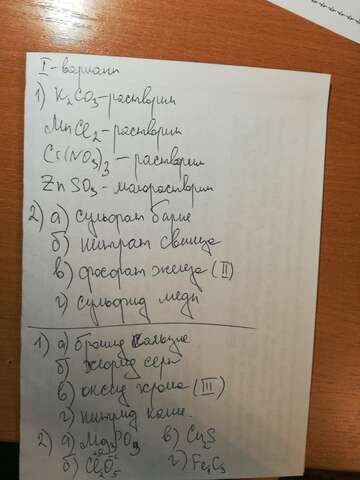 I-вариант
1) K2CO3-растворим
MnCl2-растворим
Cr(NO3)3 - растворим
ZnSO3-малорастворим
2) а) сульфат бария
б) нитрат свинца
в) фосфат железа (II)
г) сульфид меди
1) а) бромид кальция
б) хлорид серы
в) оксид хрома (III)
г) нитрид калия.
2) а) Mg3PO3 в) CuS
б) Cl2O5 г) Fe3C3